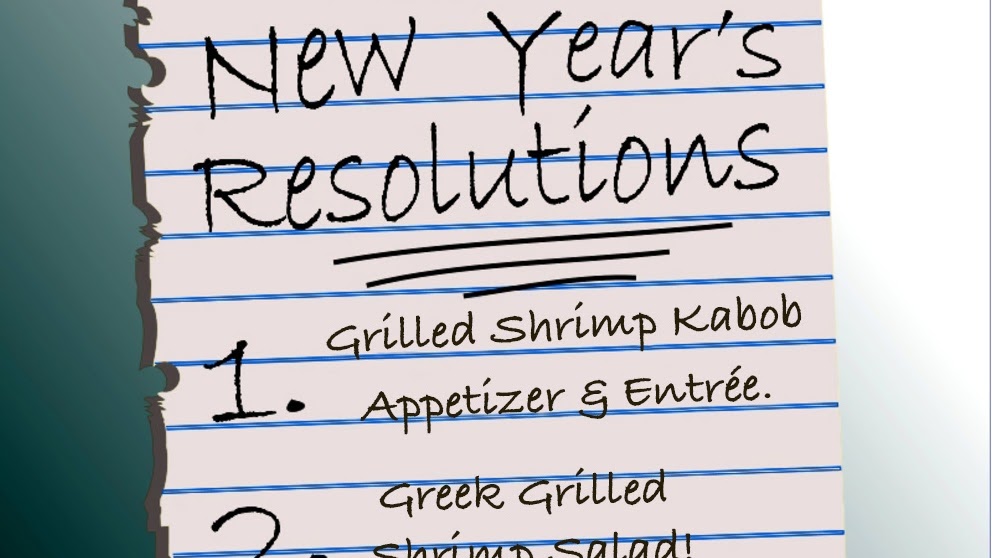 New Year's
Resolutions
1. Grilled Shrimp Kabob
Appetizer & Entrée.
2. Greek Grilled
Shrimp Salad!